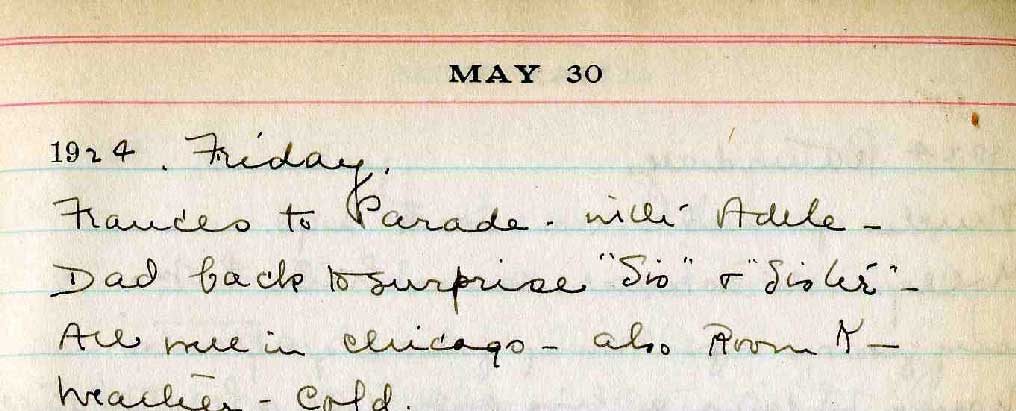 MAY 30
1924. Friday.
Frances to Parade - with Adele -
Dad back to surprise "Sis" & "Sister" -
All well in Chicago - also Room K -
Weather - Cold.